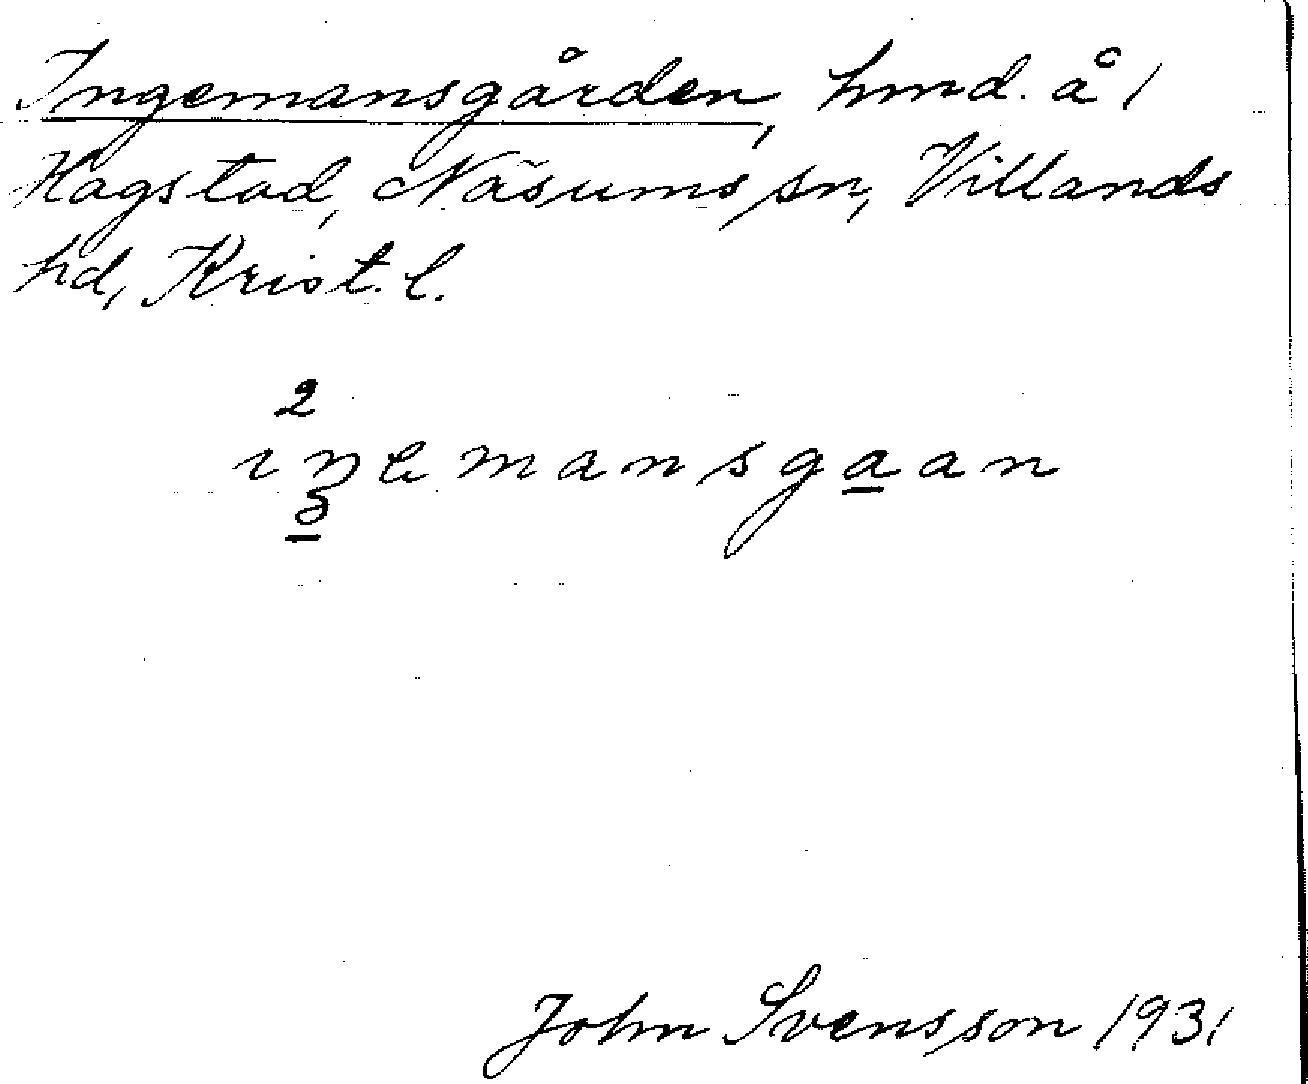 Ingemansgården, hmd. å 1
Hagstad, Näsums sn, Villands
hd, Krist. l.
2
iŋemansgaan
3
John Svensson 1931